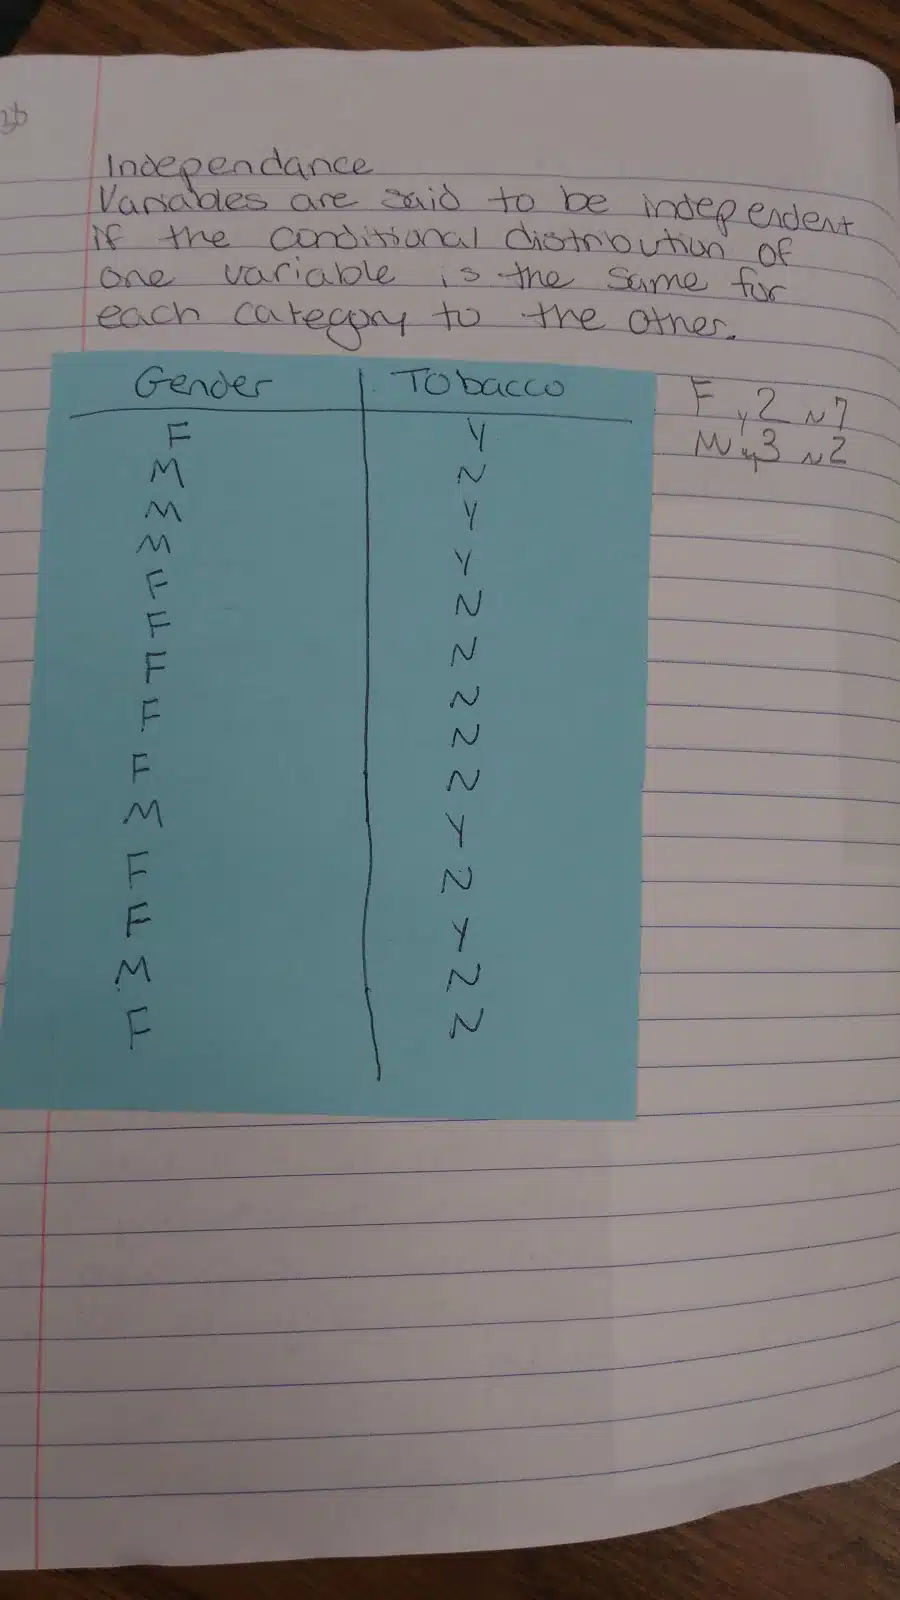 Independance
Variables are said to be independent
if the conditional distribution of
one variable is the same for
each category to the other.
Gender Tobacco
F Y
M N
M Y
M Y
F N
F N
F N
F N
F N
M Y
F N
F Y
M N
F N
F Y2 N7
M Y3 N2